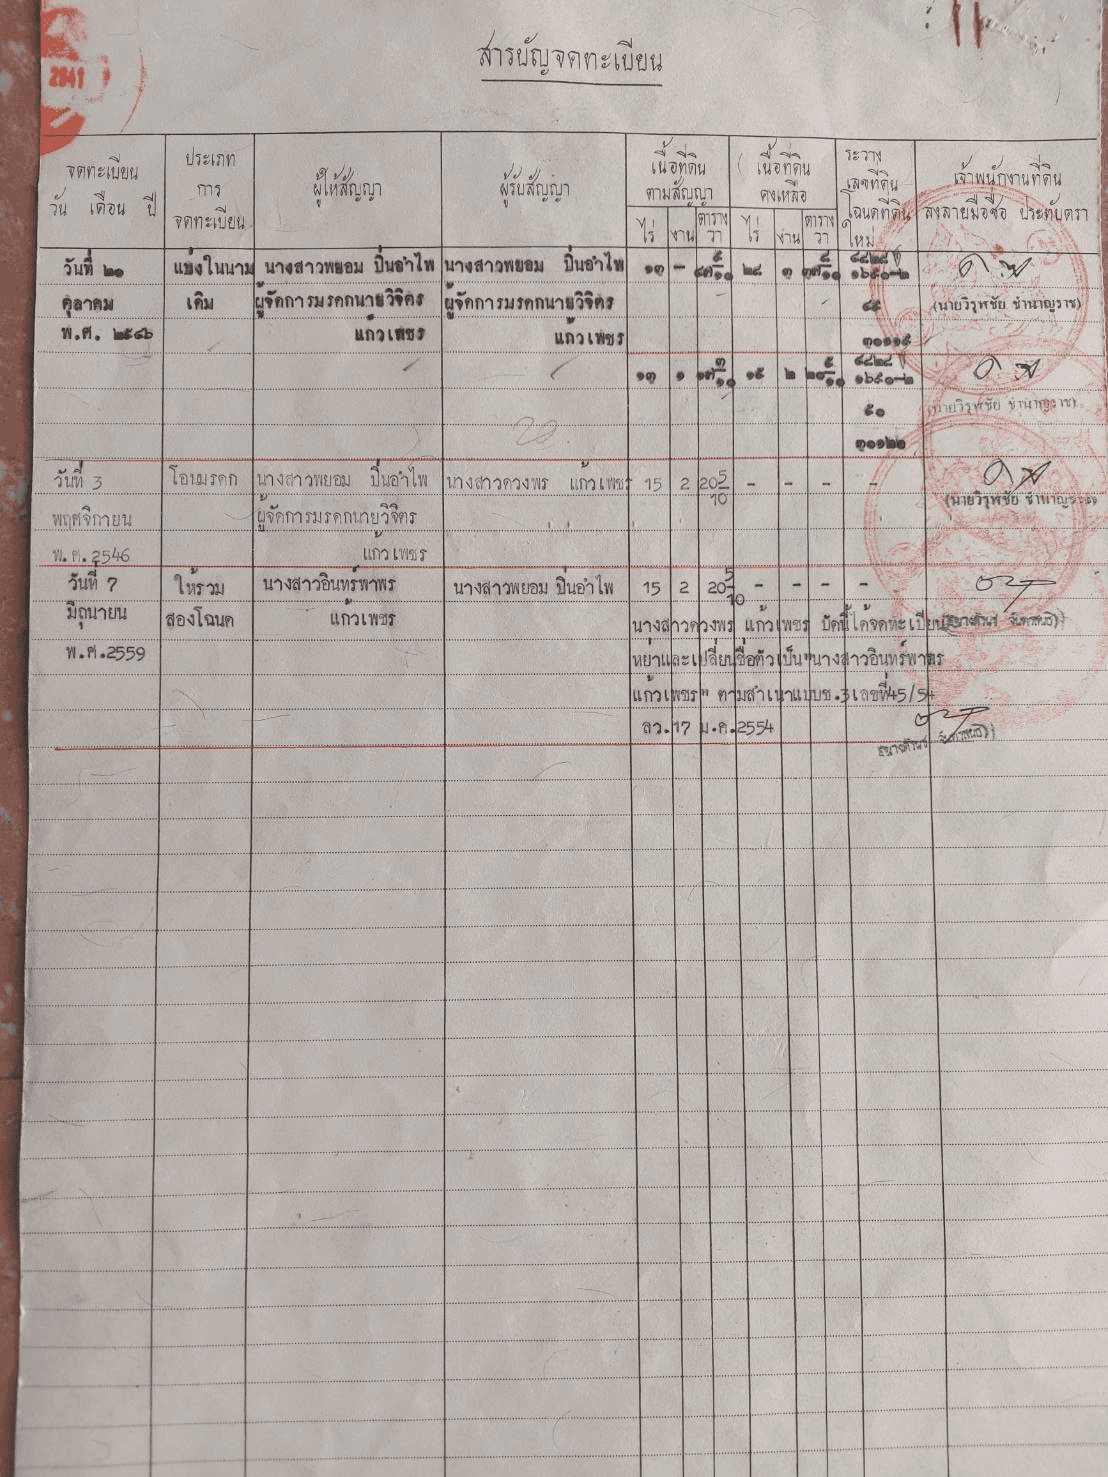 2041
สารบัญจดทะเบียน
จดทะเบียน
วัน เดือน ปี
ประเภท
การ
จดทะเบียน
ผู้ให้สัญญา
ผู้รับสัญญา
เนื้อที่ดิน
ตามสัญญา
ไร่ งาน ตาราง
วา
เนื้อที่ดิน
คงเหลือ
ไร่ งาน ตาราง
วา
ระวาง
เลขที่ดิน
โฉนดที่ดิน
ใหม่
เจ้าพนักงานที่ดิน
ลงลายมือชื่อ ประทับตรา
วันที่ ๒๑ แบ่งในนาม นางสาวพยอม ปิ่นอำไพ นางสาวพยอม ปิ่นอำไพ ๑๓ –
ตุลาคม เดิม ผู้จัดการมรดกนายวิจิตร ผู้จัดการมรดกนายวิจิตร ๔๙ (นายวิรุฬชัย ชำนาญราช)
พ.ศ. ๒๕๔๖ แก้วเพชร แก้วเพชร
๑๓ ๑ ๑๕ ๒
๕๐ (นายวิรุฬชัย ชำนาญราช)
๓๐๑๒๒
วันที่ 3 โอนมรดก นางสาวพยอม ปิ่นอำไพ นางสาวดวงพร แก้วเพชร 15 2 20 5/10 – – – –
พฤศจิกายน ผู้จัดการมรดกนายวิจิตร (นายวิรุฬชัย ชำนาญราช)
พ.ศ.2546 แก้วเพชร
วันที่ 7 ให้รวม นางสาวอินทร์พาพร นางสาวพยอม ปิ่นอำไพ 15 2 20 5/10 – – – –
มิถุนายน สองโฉนด แก้วเพชร
พ.ศ.2559
นางสาวดวงพร แก้วเพชร บัดนี้ได้จดทะเบียน
หย่าและเปลี่ยนชื่อตัวเป็น"นางสาวอินทร์พาพร
แก้วเพชร" ตามสำเนาแบบช.3เลขที่45/54
ลว.17 ม.ค.2554